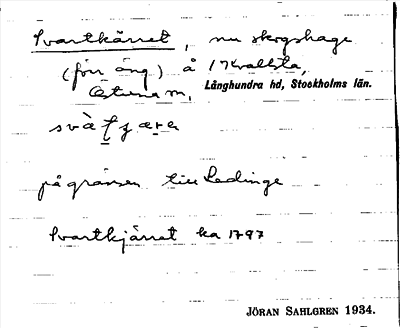 Svartkärret, nu skogshage
(förr äng) å 1 Kvallsta,
Östuna sn, Långhundra hd, Stockholms län.
på gränsen till Ledinge
Svartkjärret ka 1797
JÖRAN SAHLGREN 1934.